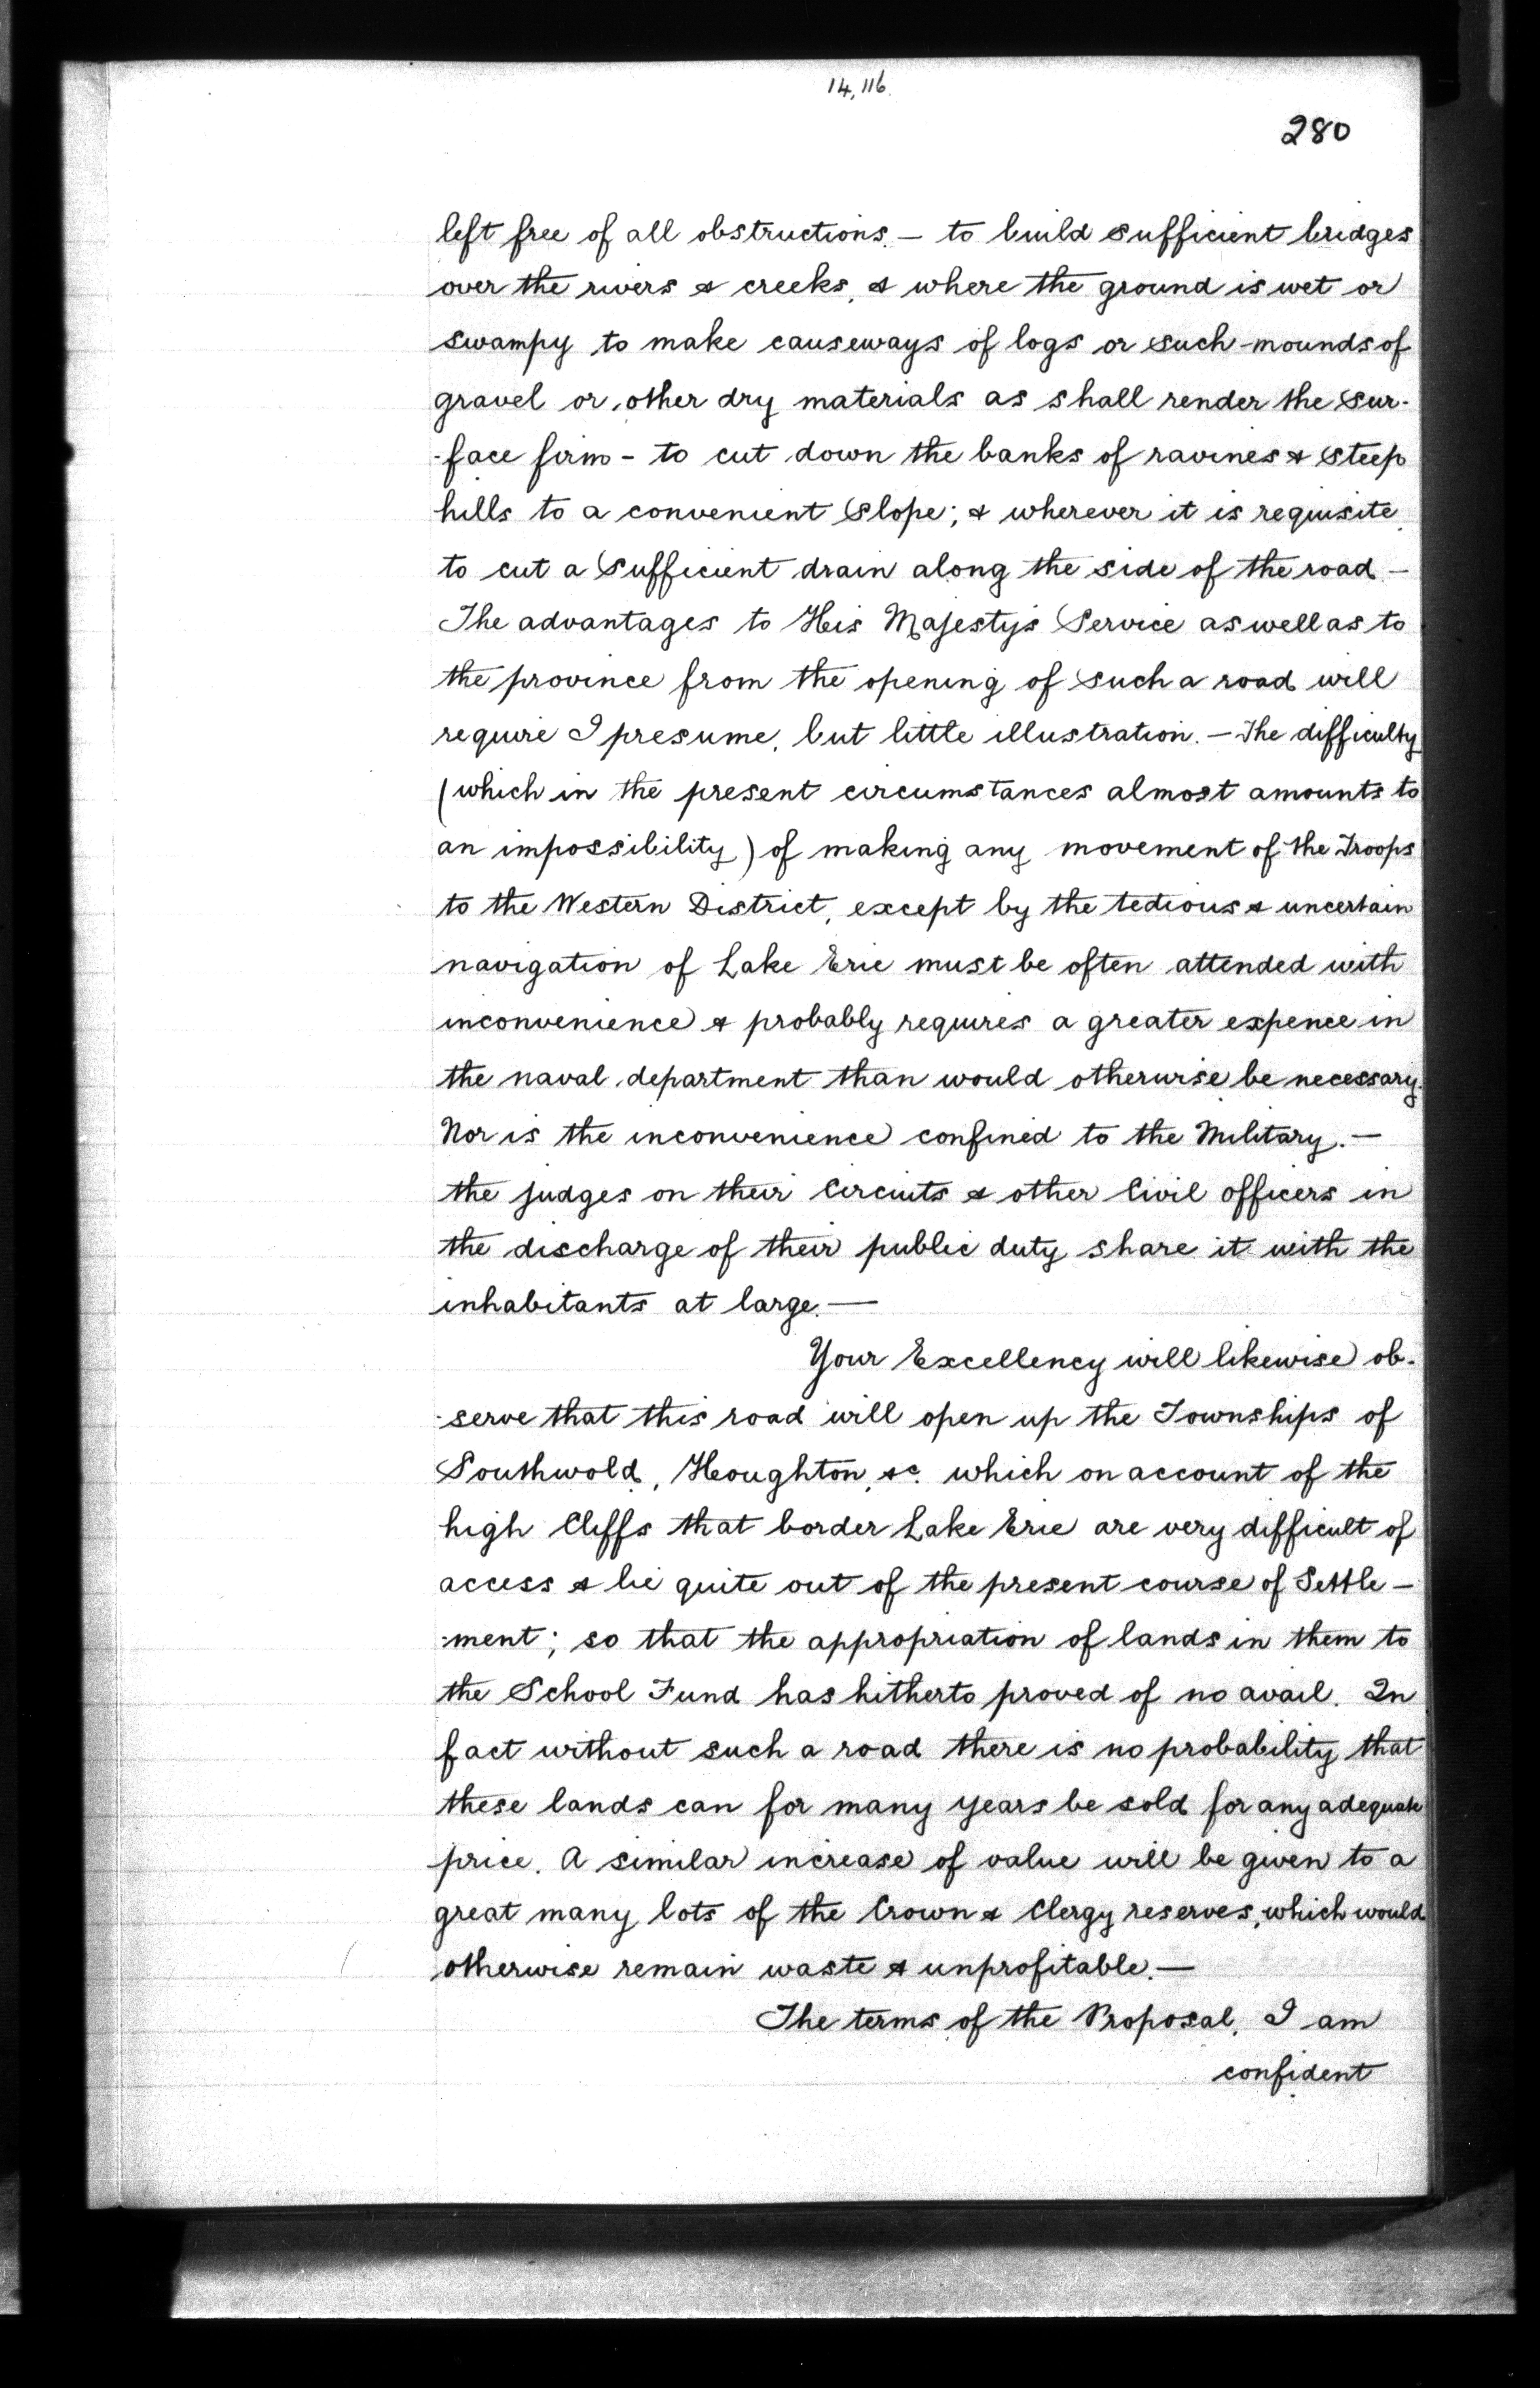 14,116.
280
left free of all obstructions. — to build sufficient bridges
over the rivers & creeks, & where the ground is wet or
swampy to make causeways of logs or such mounds of
gravel or other dry materials as shall render the sur-
-face firm - to cut down the banks of ravines & steep
hills to a convenient slope; & wherever it is requisite
to cut a sufficient drain along the side of the road —
The advantages to His Majesty's Service as well as to
the province from the opening of such a road will
require I presume, but little illustration. — The difficulty
(which in the present circumstances almost amounts to
an impossibility) of making any movement of the Troops
to the Western District, except by the tedious & uncertain
navigation of Lake Erie must be often attended with
inconvenience & probably requires a greater expence in
the naval department than would otherwise be necessary.
Nor is the inconvenience confined to the Military. —
the judges on their Circuits & other Civil officers in
the discharge of their public duty share it with the
inhabitants at large. —
Your Excellency will likewise ob-
-serve that this road will open up the Townships of
Southwold, Houghton, &c. which on account of the
high Cliffs that border Lake Erie are very difficult of
access & lie quite out of the present course of Settle —
-ment; so that the appropriation of lands in them to
the School Fund has hitherto proved of no avail. In
fact without such a road there is no probability that
these lands can for many years be sold for any adequate
price. A similar increase of value will be given to a
great many lots of the Crown & Clergy reserves, which would
otherwise remain waste & unprofitable. —
The terms of the Proposal, I am
confident